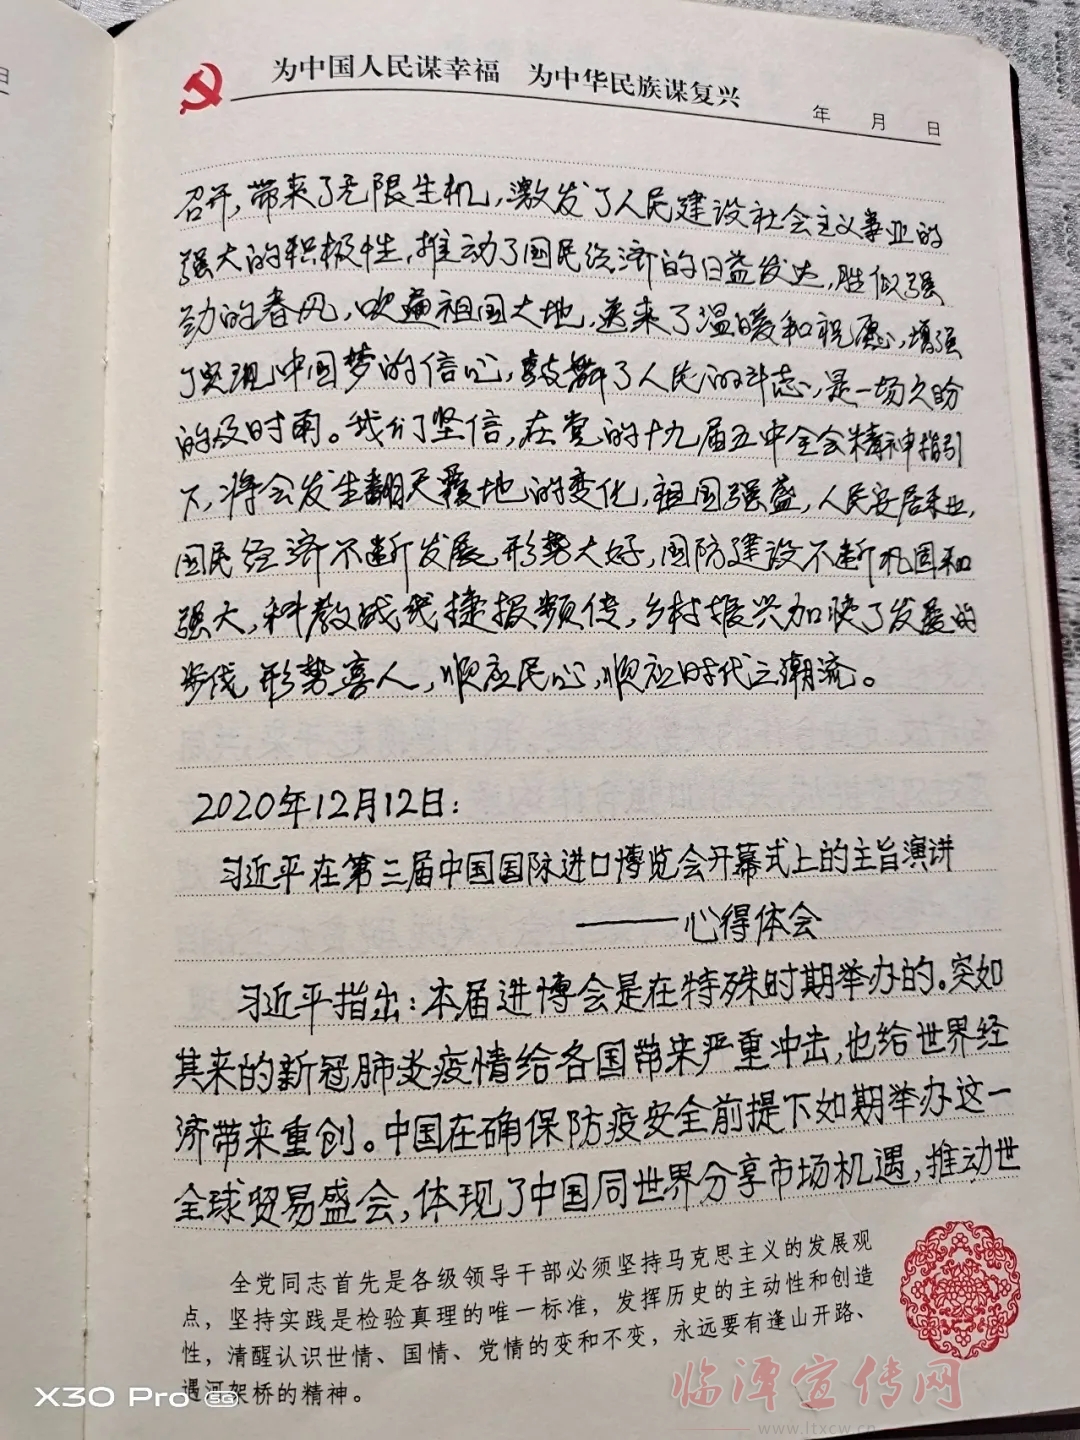 为中国人民谋幸福 为中华民族谋复兴
年 月 日
召开，带来了无限生机，激发了人民建设社会主义事业的
强大的积极性，推动了国民经济的日益发达，胜似强
劲的春风，吹遍祖国大地，送来了温暖和祝愿，增强
了实现中国梦的信心，鼓舞了人民的斗志，是一场久盼
的及时雨。我们坚信，在党的十九届五中全会精神指引
下，将会发生翻天覆地的变化，祖国强盛，人民安居乐业，
国民经济不断发展，形势大好，国防建设不断巩固和
强大，科教战线捷报频传，乡村振兴加快了发展的
步伐，形势喜人，顺应民心，顺应时代之潮流。
2020年12月12日：
习近平在第三届中国国际进口博览会开幕式上的主旨演讲
——心得体会
习近平指出：本届进博会是在特殊时期举办的。突如
其来的新冠肺炎疫情给各国带来严重冲击，也给世界经
济带来重创。中国在确保防疫安全前提下如期举办这一
全球贸易盛会，体现了中国同世界分享市场机遇，推动世
全党同志首先是各级领导干部必须坚持马克思主义的发展观
点，坚持实践是检验真理的唯一标准，发挥历史的主动性和创造
性，清醒认识世情、国情、党情的变和不变，永远要有逢山开路、
遇河架桥的精神。
X30 Pro 5G
临潭宣传网
www.ltxcw.cn
日